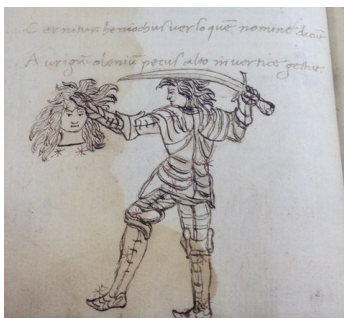 Cernitur heniochus verso quē nomine dicūt
Aurigā oleniū pecus alto in vertice gestat